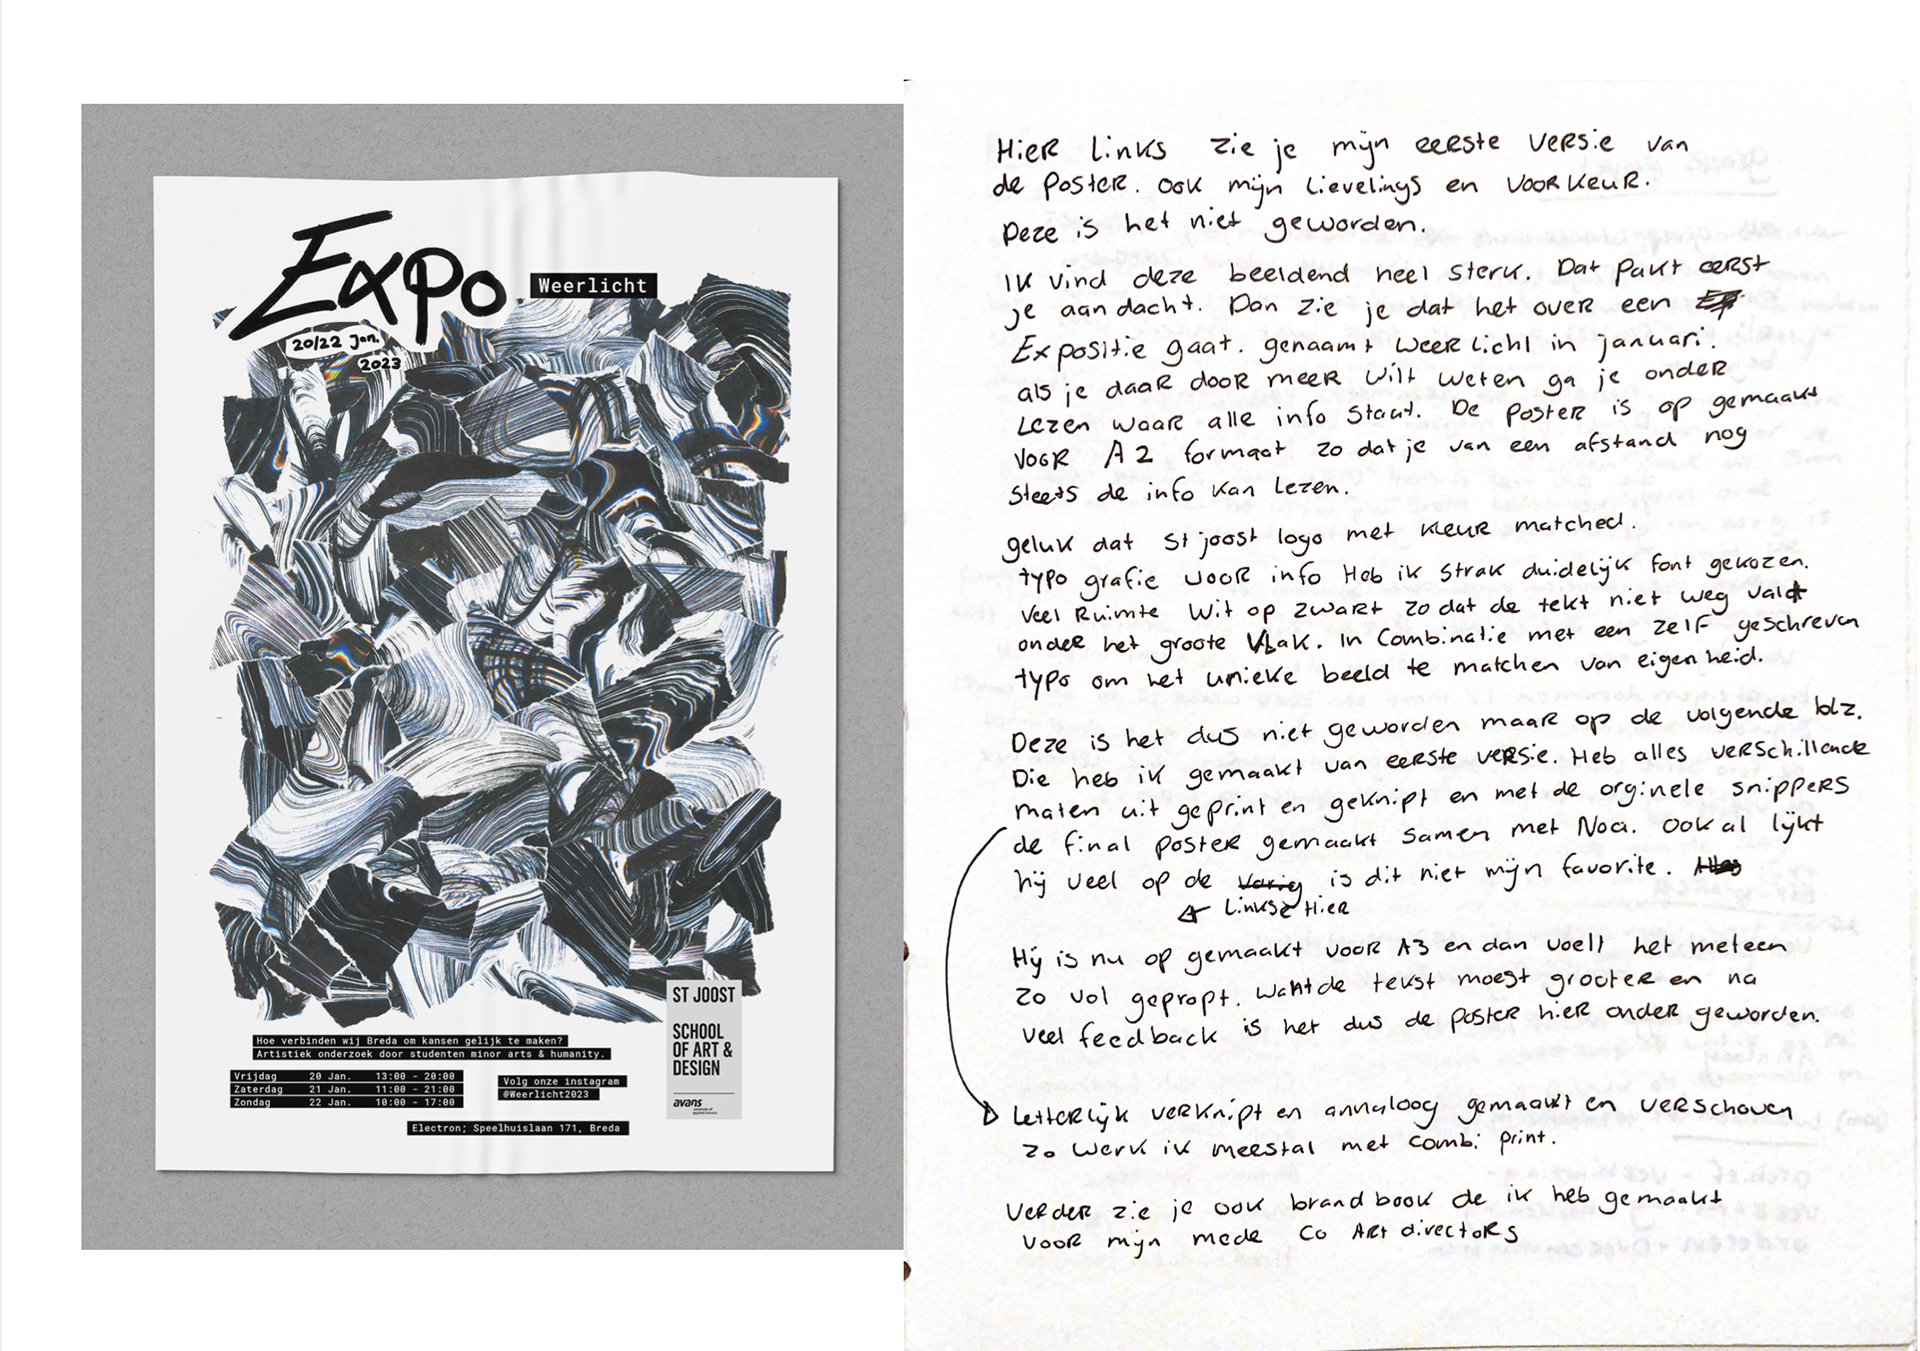 Expo
Weerlicht
20/22 Jan.
2023
Hoe verbinden wij Breda om kansen gelijk te maken?
Artistiek onderzoek door studenten minor arts & humanity.
Vrijdag 20 Jan. 13:00 - 20:00
Zaterdag 21 Jan. 11:00 - 21:00
Zondag 22 Jan. 10:00 - 17:00
Volg onze instagram
@Weerlicht2023
Electron; Speelhuislaan 171, Breda
ST JOOST
SCHOOL
OF ART &
DESIGN
avans
Hier links zie je mijn eerste versie van
de poster. Ook mijn lievelings en voorkeur.
Deze is het niet geworden.
Ik vind deze beeldend heel sterk. Dat pakt eerst
je aandacht. Dan zie je dat het over een
Expositie gaat. genaamt weerlicht in januari.
als je daar door meer wilt weten ga je onder
lezen waar alle info staat. De poster is op gemaakt
voor A2 formaat zo dat je van een afstand nog
steets de info kan lezen.
geluk dat St joost logo met kleur matched.
typo grafie voor info Heb ik strak duidelijk font gekozen.
veel Ruimte Wit op zwart zo dat de tekt niet weg valt
onder het groote vlak. In Combinatie met een zelf geschreven
typo om het unieke beeld te matchen van eigenheid.
Deze is het dus niet geworden maar op de volgende blz.
Die heb ik gemaakt van eerste versie. Heb alles verschillende
maten uit geprint en geknipt en met de orginele snippers
de final poster gemaakt samen met Noa. Ook al lijkt
hij veel op de is dit niet mijn favorite.
Linkse Hier
Hij is nu op gemaakt voor A3 en dan voelt het meteen
zo vol gepropt. Want de tekst moest grooter en na
veel feedback is het dus de poster hier onder geworden.
Letterlijk verknipt en annaloog gemaakt en verschoven
zo werk ik meestal met combi print.
Verder zie je ook brandbook de ik heb gemaakt
voor mijn mede Co Art directors